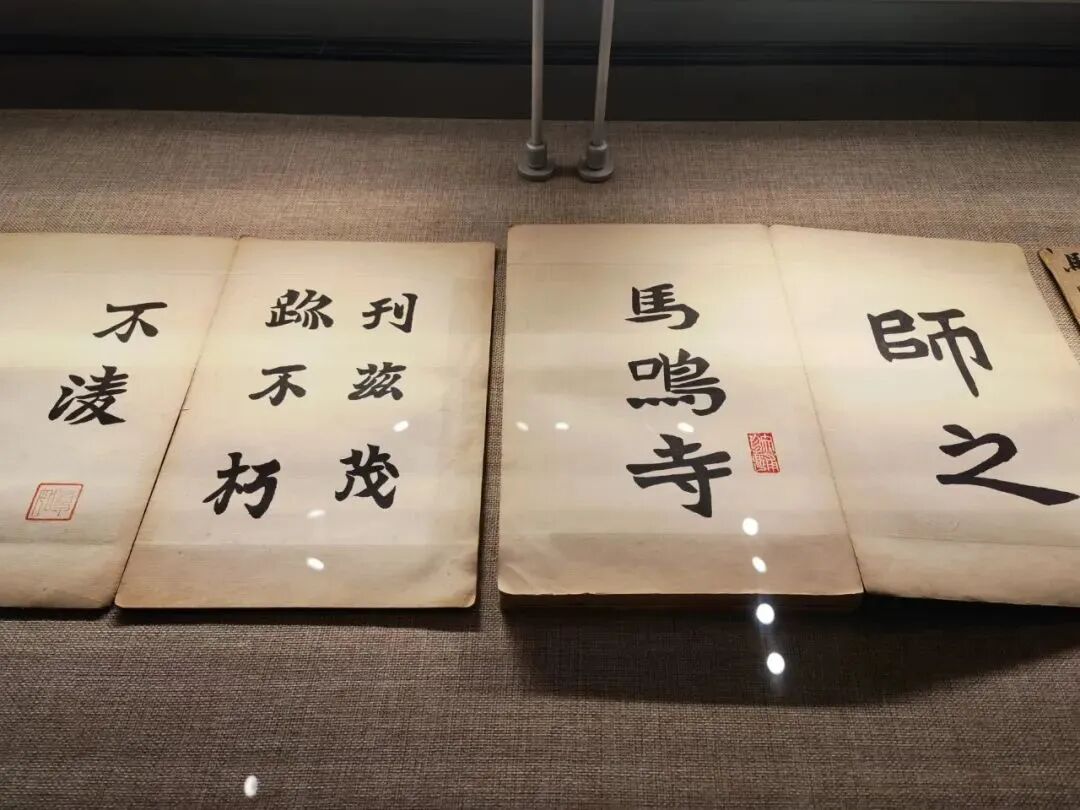 師之
馬鳴寺
刊茲茂
跡不朽
不淩